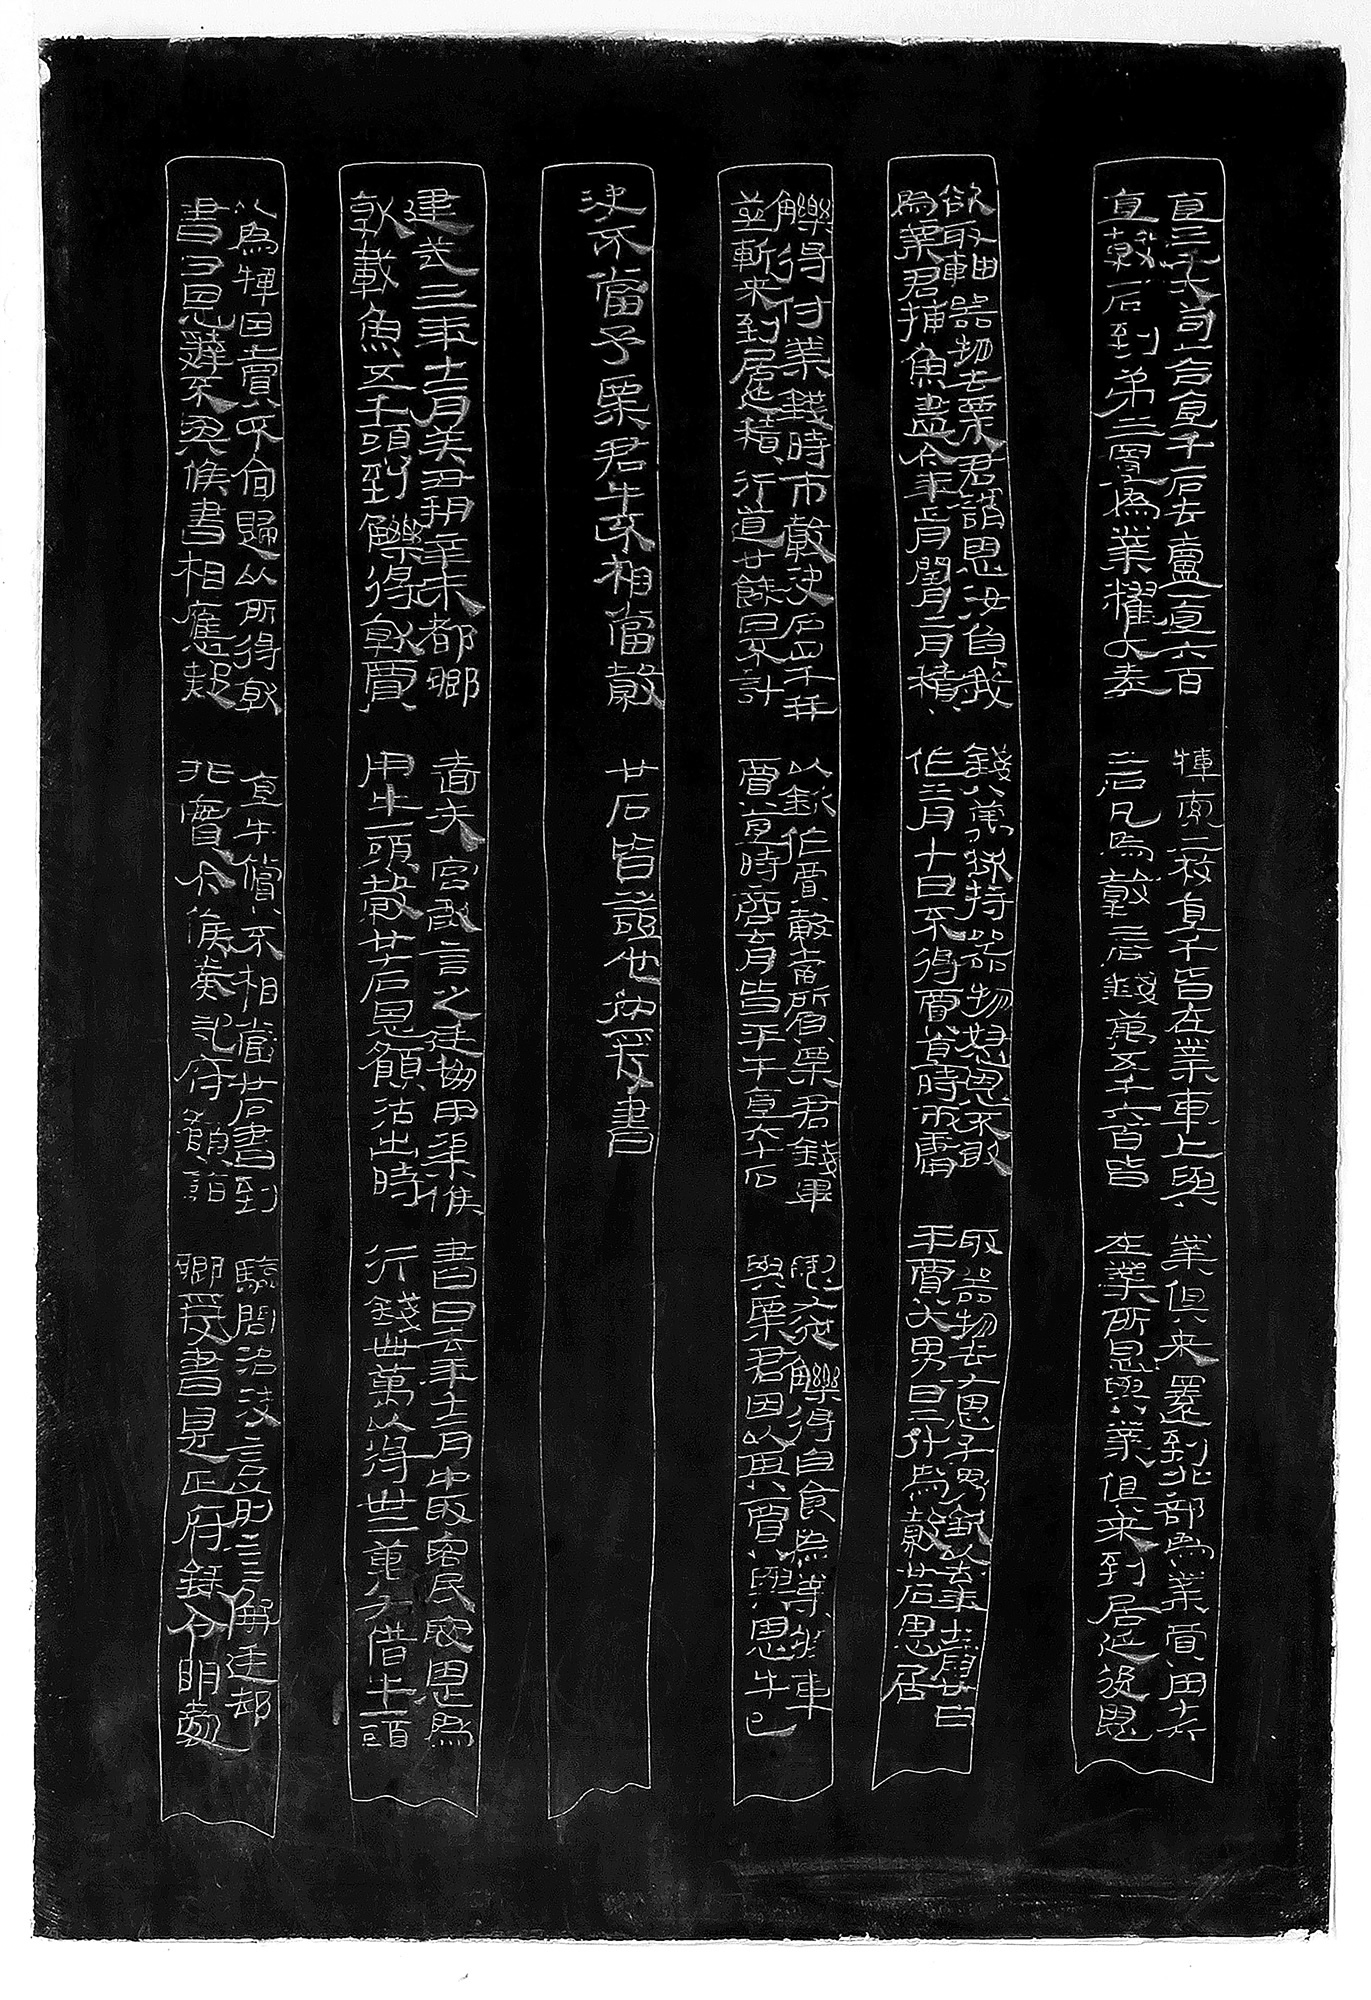 直三千大笥一合直千一石去盧一直六百 犍索二枚直千皆在業車上與 業俱来還到北部為業買肉十
直穀一石到弟三置為業糴大麦 二石凡為穀三石錢萬五千六百皆 在業所恩與業俱来到居延後恩
欲取軸器物去粟君謂恩汝負我 錢八萬欲持器物怒恩不敢 取器物去又恩子男欽以去年十二月廿日
為粟君捕魚盡今年正月閏月二月積 作三月十日不得賈直時市庸 平賈大男日二斗為穀廿石恩居
觻得付業錢時市穀決石四千并 以欽作賈穀當所負粟君錢畢 恩又從觻得自食為業將車
莝斬来到居延積行道廿餘日不計 賈直時商育皆平牛直六十石 與粟君因以其賈與恩牛已
決不當予粟君牛不相當穀 廿石皆證也如爰書
建武三年十二月癸丑朔辛未都鄉 嗇夫宮敢言之廷移甲渠候 書曰去年十二月中取客民寇恩為
就載魚五千頭到觻得就賈 用牛一頭穀廿七石恩願沽出時 行錢卌萬以得卅二萬又借牛一頭
以為犅因賣不肯歸以所得就 直牛償不相當廿石書到 驗問治決言前言解廷却
書曰恩辤不與候書相應疑 非實今候奏記府願詣 鄉爰書是正府錄令明處